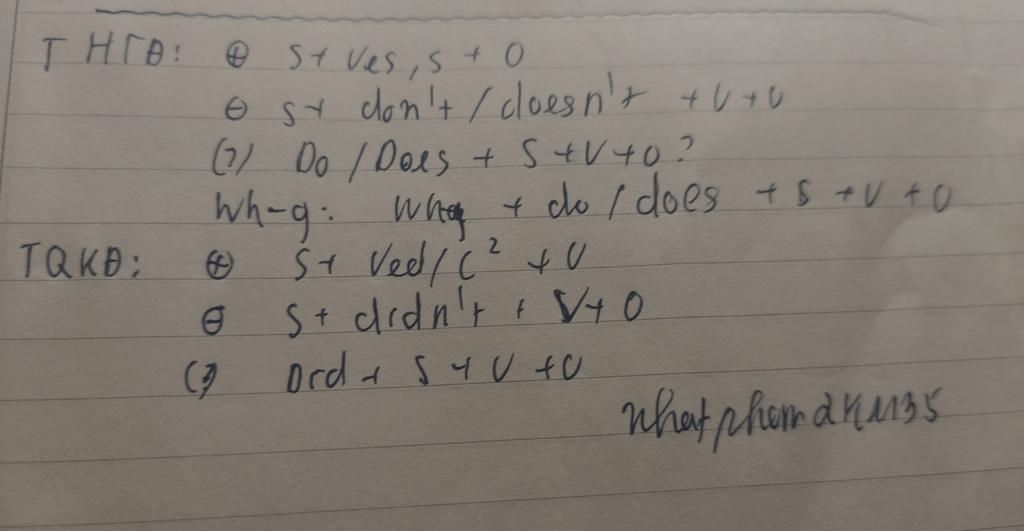 T HTĐ: ⊕ S + Ves, s + O
⊖ S + don't / doesn't + V + O
(?) Do / Does + S + V + O?
Wh-q: Whq + do / does + S + V + O
TQKĐ: ⊕ S + Ved / C² + O
⊖ S + didn't + V + O
(?) Did + S + V + O